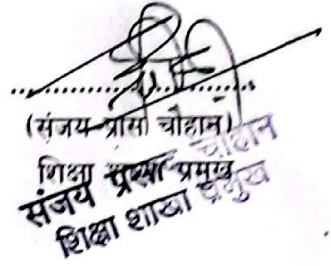 (संजय प्रासा चौहान)
शिक्षा शाखा प्रमुख
संजय प्रासा चौहान
शिक्षा शाखा प्रमुख